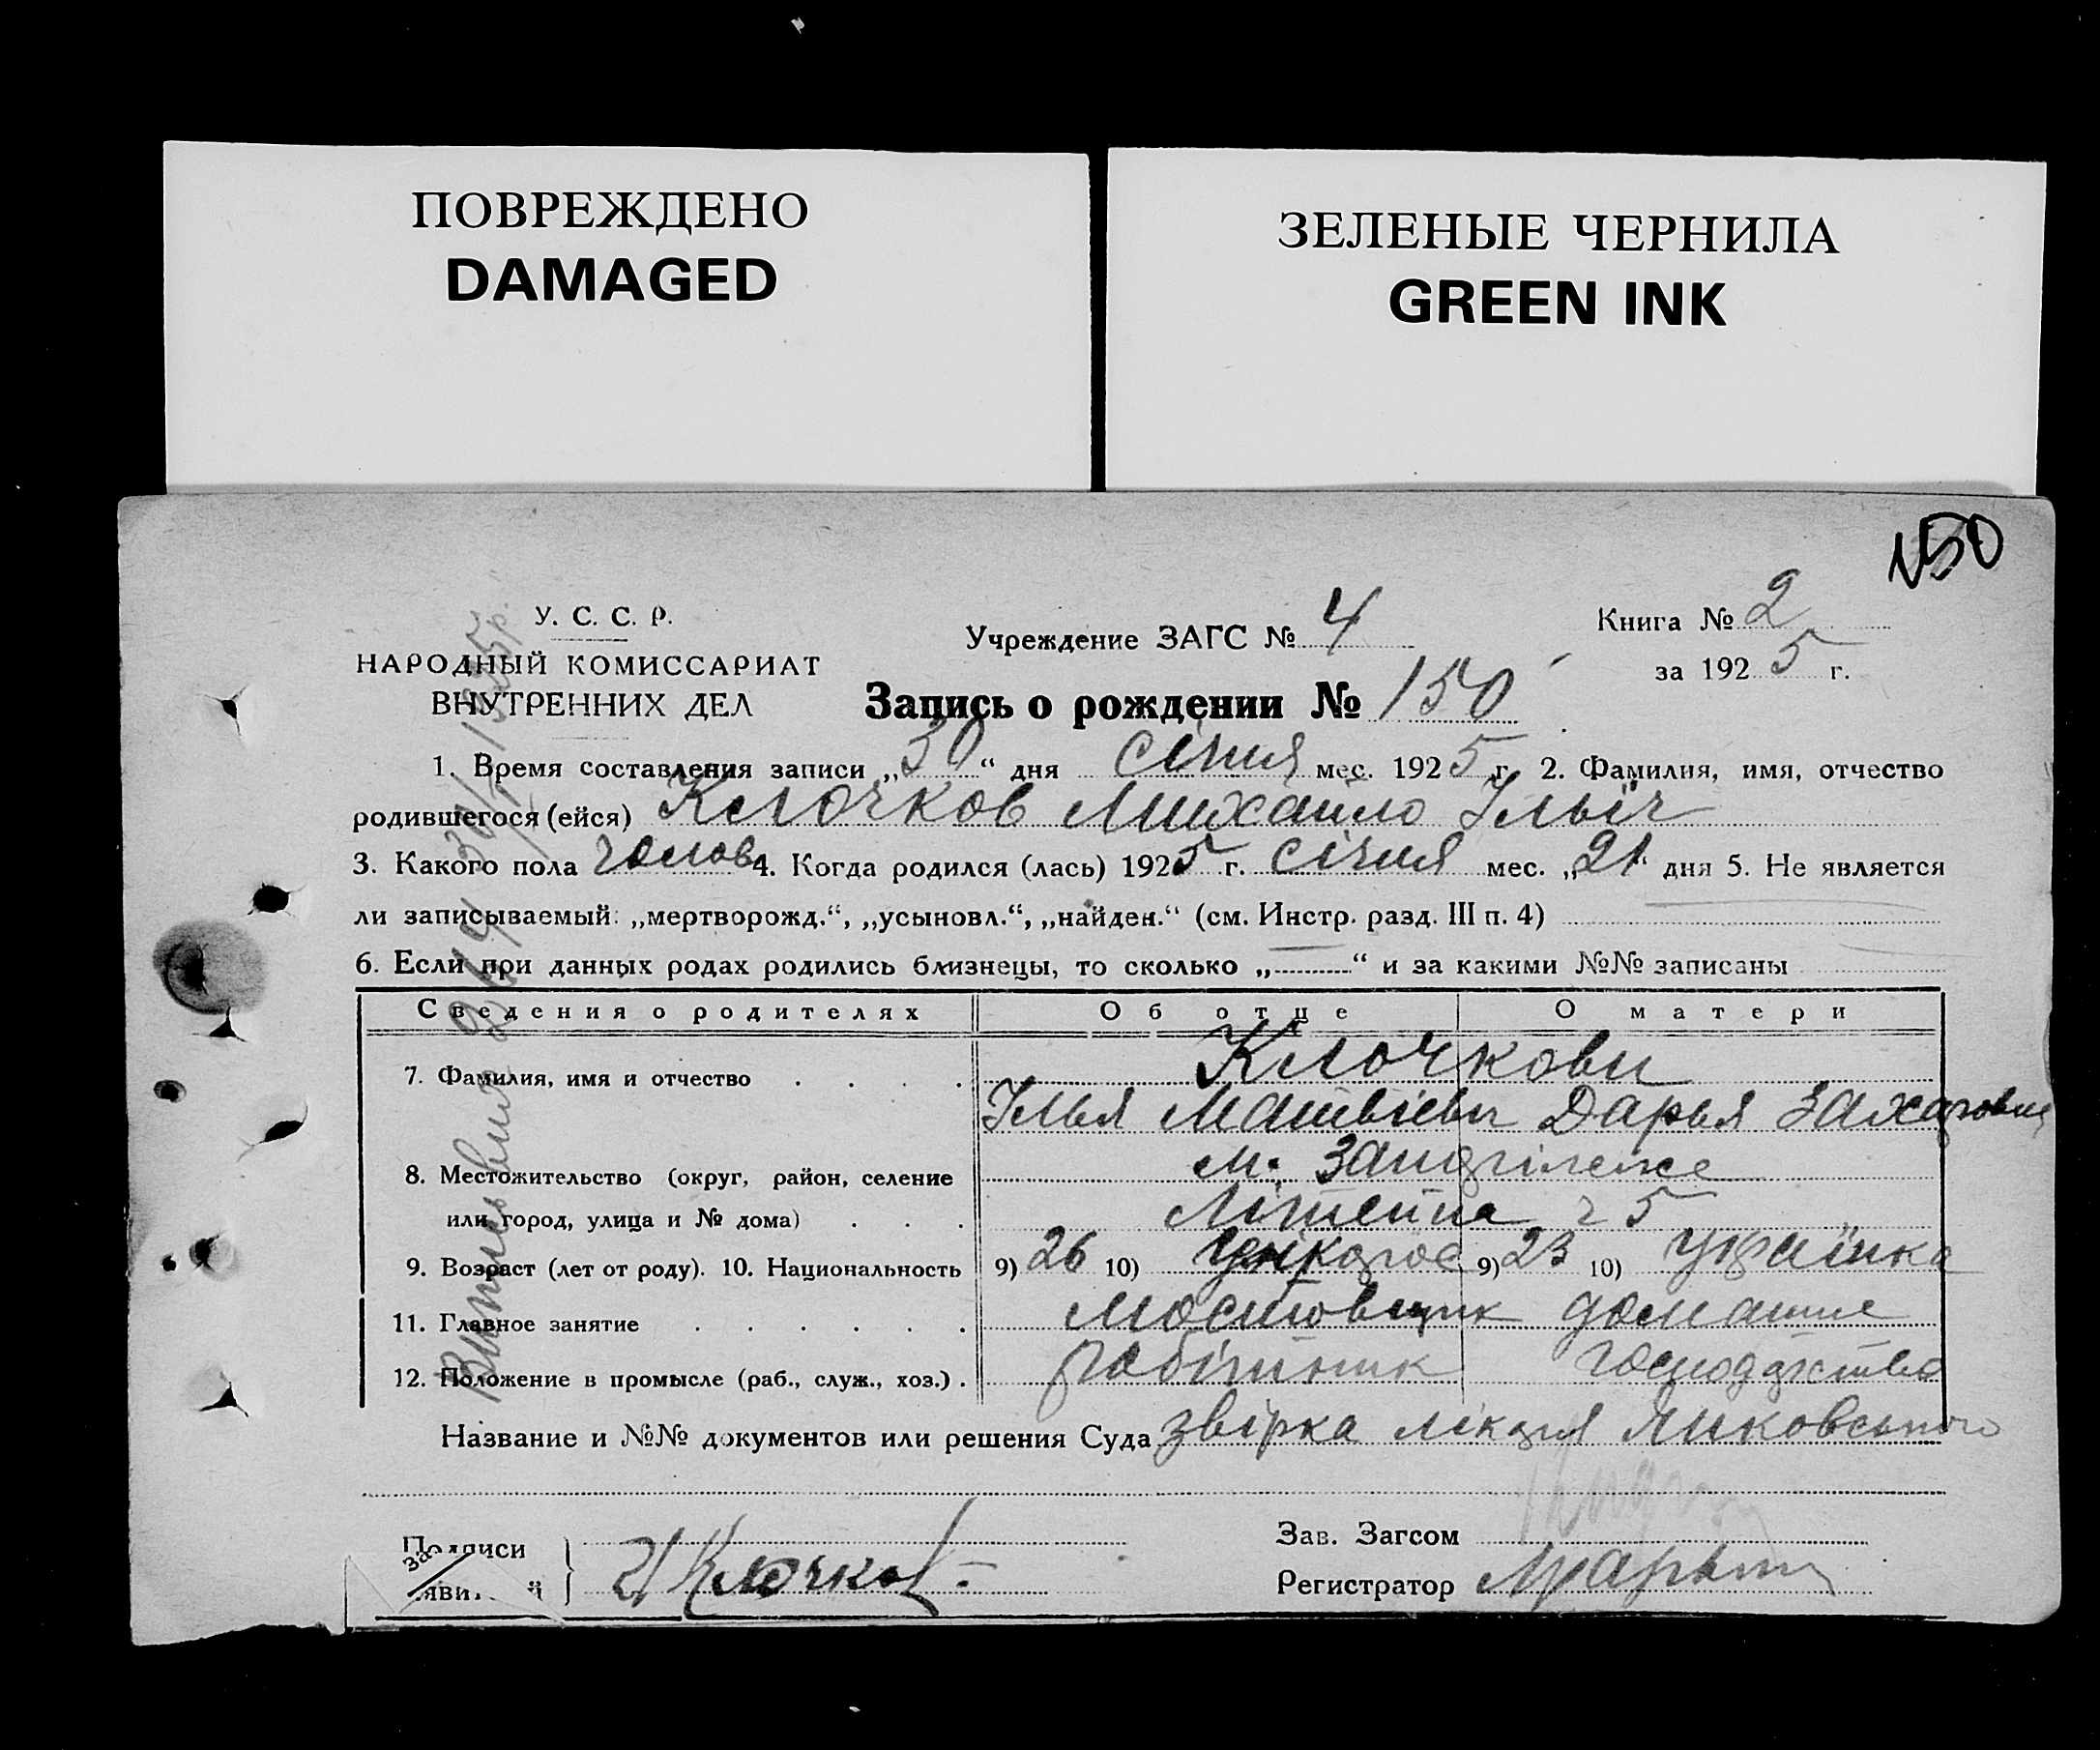 ПОВРЕЖДЕНО
DAMAGED
ЗЕЛЕНЫЕ ЧЕРНИЛА
GREEN INK
150
У. С. С. Р.
НАРОДНЫЙ КОМИССАРИАТ
ВНУТРЕННИХ ДЕЛ
Учреждение ЗАГС № 4
Книга № 2
за 1925 г.
Запись о рождении № 150
1. Время составления записи „30“ дня січня мес. 1925 г. 2. Фамилия, имя, отчество
родившегося (ейся) Клочков Михайло Ільіч
3. Какого пола чолов. 4. Когда родился (лась) 1925 г. січня мес. „21“ дня 5. Не является
ли записываемый: „мертворожд.“, „усыновл.“, „найден.“ (см. Инстр. разд. III п. 4)
6. Если при данных родах родились близнецы, то сколько „ “ и за какими №№ записаны
Сведения о родителях Об отце О матери
7. Фамилия, имя и отчество Клочкови
Ілья Матвієвич Дарья Захаровна
8. Местожительство (округ, район, селение м.
или город, улица и № дома) ч 5
9. Возраст (лет от роду). 10. Национальность 9) 26 10) 9) 23 10) Українка
11. Главное занятие Мостовщик домашнє
12. Положение в промысле (раб., служ., хоз.) робітник господарство
Название и №№ документов или решения Суда звірка лікаря
Подписи
заявителей
И Клочков
Зав. Загсом
Регистратор